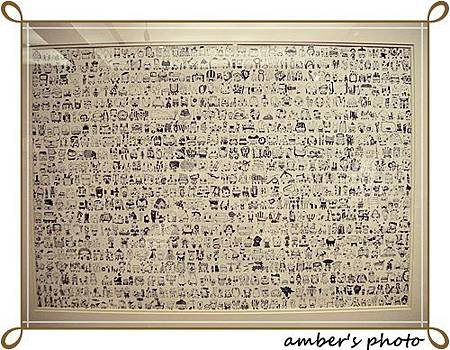 amber's photo